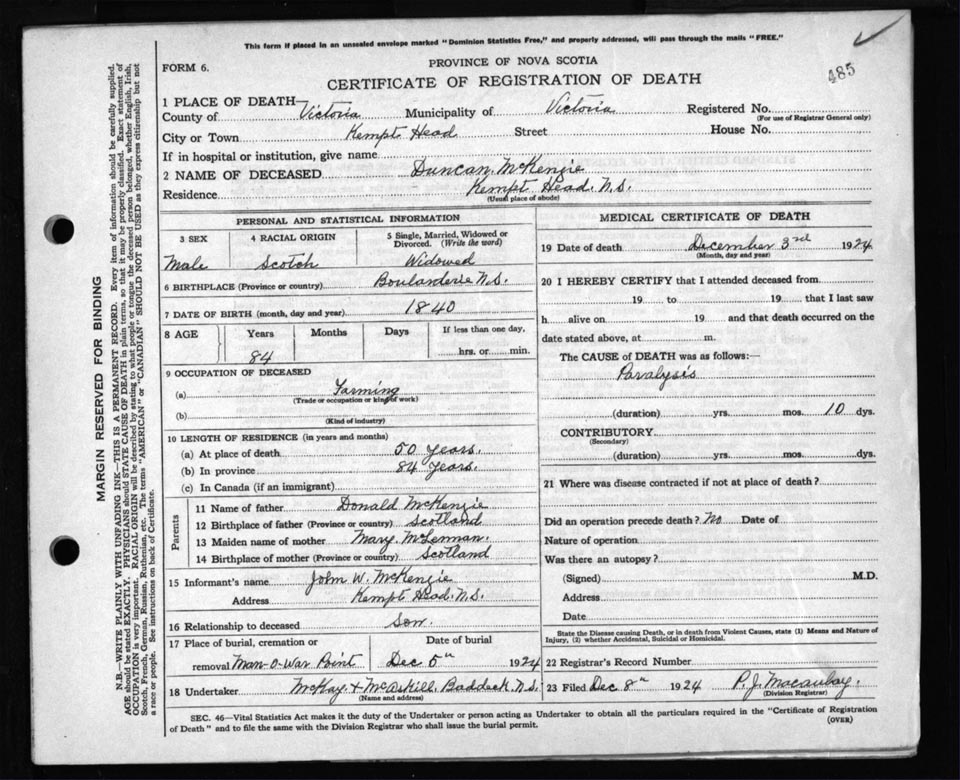 This form if placed in an unsealed envelope marked "Dominion Statistics Free," and properly addressed, will pass through the mails "FREE."
485
FORM 6.
PROVINCE OF NOVA SCOTIA
CERTIFICATE OF REGISTRATION OF DEATH
1 PLACE OF DEATH—
County of Victoria Municipality of Victoria Registered No.
(For use of Registrar General only)
City or Town Kempt Head Street House No.
If in hospital or institution, give name
2 NAME OF DECEASED Duncan McKenzie
Residence Kempt Head. N.S.
(Usual place of abode)
PERSONAL AND STATISTICAL INFORMATION
3 SEX 4 RACIAL ORIGIN 5 Single, Married, Widowed or Divorced. (Write the word)
Male Scotch Widowed
6 BIRTHPLACE (Province or country) Boulanderie N.S.
7 DATE OF BIRTH (month, day and year) 1840
8 AGE Years Months Days If less than one day,
84 hrs. or min.
9 OCCUPATION OF DECEASED
(a) Farming
(Trade or occupation or kind of work)
(b)
(Kind of industry)
10 LENGTH OF RESIDENCE (in years and months)
(a) At place of death 50 years.
(b) In province 84 years.
(c) In Canada (if an immigrant)
Parents
11 Name of father Donald McKenzie
12 Birthplace of father (Province or country) Scotland
13 Maiden name of mother Mary McLennan
14 Birthplace of mother (Province or country) Scotland
15 Informant's name John W. McKenzie
Address Kempt Head. N.S.
16 Relationship to deceased Son.
17 Place of burial, cremation or Date of burial
removal Man-O-War Point Dec 5th 1924
18 Undertaker McKay & McAskill, Baddeck N.S.
(Name and address)
MEDICAL CERTIFICATE OF DEATH
19 Date of death December 3rd 1924
(Month, day and year)
20 I HEREBY CERTIFY that I attended deceased from
19 to 19 that I last saw
h alive on 19 and that death occurred on the
date stated above, at m.
The CAUSE of DEATH was as follows:—
Paralysis
(duration) yrs. mos. 10 dys.
CONTRIBUTORY
(Secondary)
(duration) yrs. mos. dys.
21 Where was disease contracted if not at place of death?
Did an operation precede death? No Date of
Nature of operation
Was there an autopsy?
(Signed) M.D.
Address
Date
State the Disease causing Death, or in death from Violent Causes, state (1) Means and Nature of
Injury, (2) whether Accidental, Suicidal or Homicidal.
22 Registrar's Record Number
23 Filed Dec 8th 1924 P.J. Macaulay.
(Division Registrar)
SEC. 46—Vital Statistics Act makes it the duty of the Undertaker or person acting as Undertaker to obtain all the particulars required in the "Certificate of Registration
of Death" and to file the same with the Division Registrar who shall issue the burial permit. (OVER)
MARGIN RESERVED FOR BINDING
N.B.—WRITE PLAINLY WITH UNFADING INK—THIS IS A PERMANENT RECORD. Every item of information should be carefully supplied.
AGE should be stated EXACTLY. PHYSICIANS should STATE CAUSE OF DEATH in plain terms, so that it may be properly classified. Exact statement of
OCCUPATION is very important. RACIAL ORIGIN will be described by stating to what people or tongue the deceased person belonged, whether English, Irish,
Scotch, French, German, Russian, Ruthenian, etc. The terms "AMERICAN" or "CANADIAN" SHOULD NOT BE USED as they express citizenship but not
a race or people. See instructions on back of Certificate.